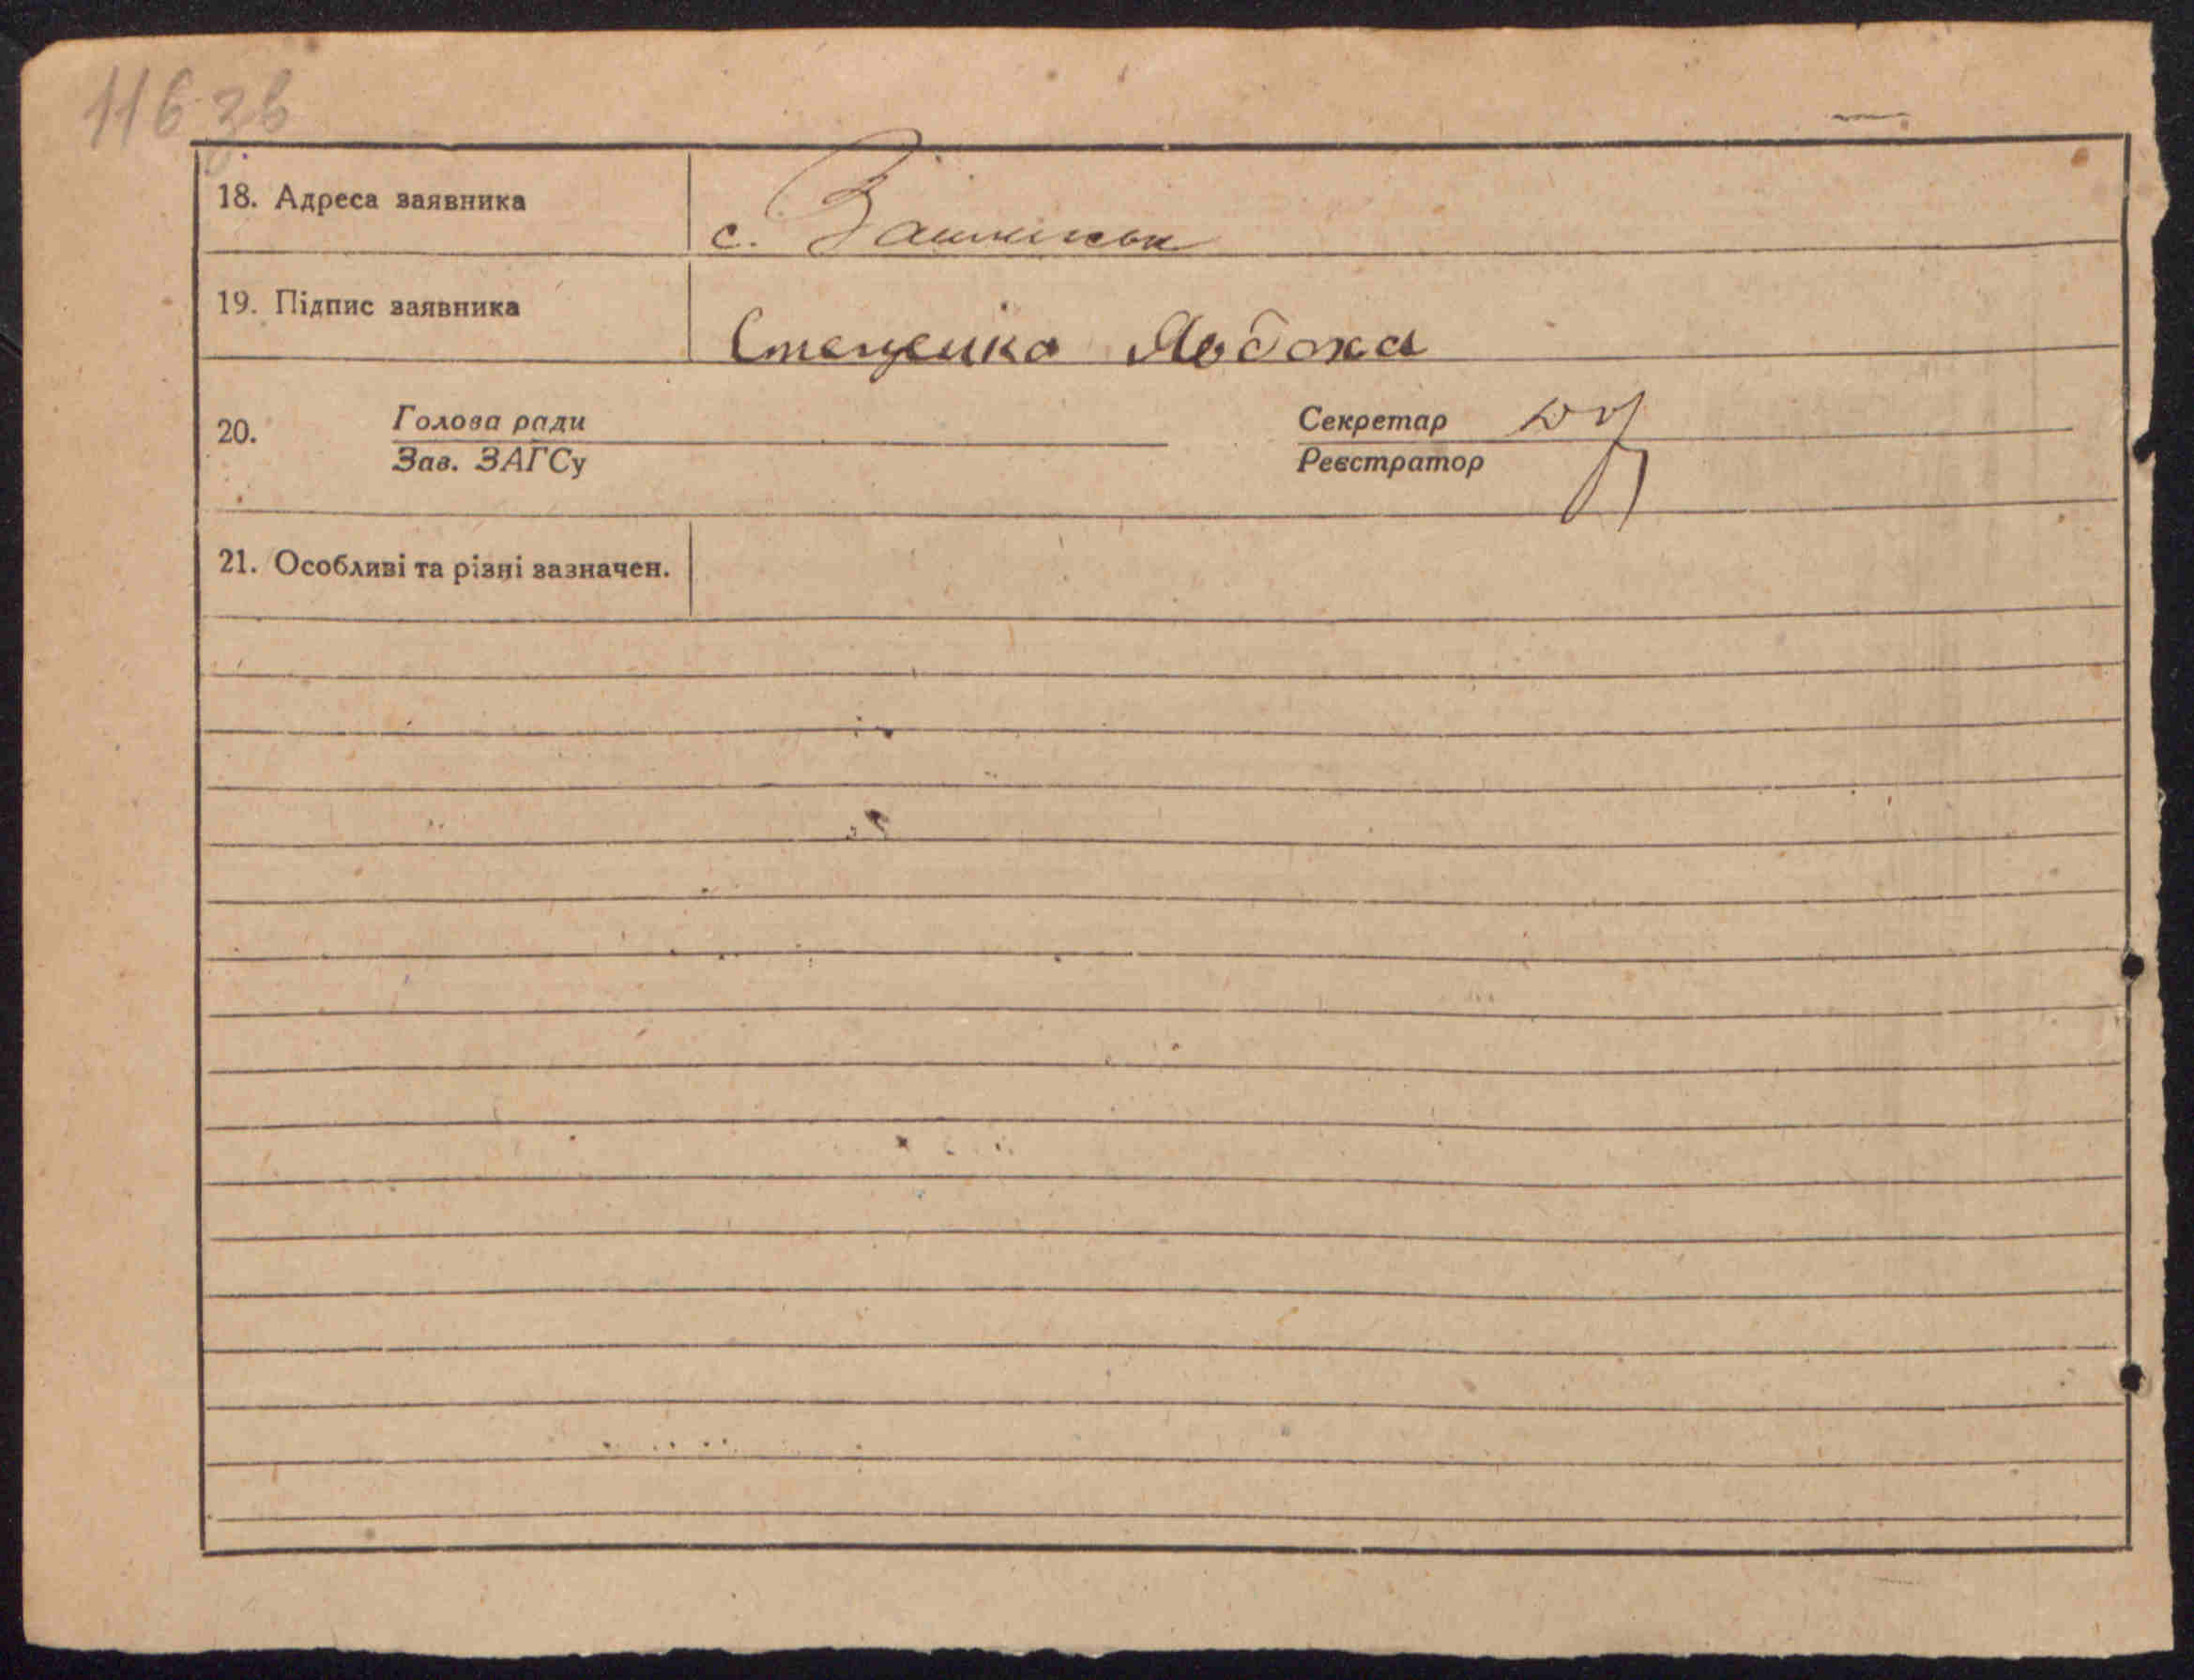 116 зв
18. Адреса заявника с.
19. Підпис заявника Стеценко Явдоха
20. Голова ради Секретар
Зав. ЗАГСу Реєстратор
21. Особливі та різні зазначен.